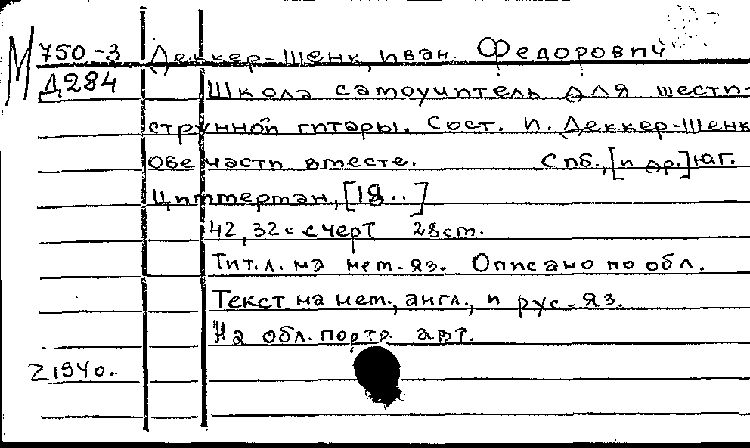 М 750-3 Деккер-Шенк, Иван Федорович
Д284 Школа самоучитель для шести-
струнной гитары. Сост. И. Деккер-Шенк
Обе части вместе. Спб., [и др.] Юг.
Циммерман, [18..]
42, 32с с черт 28см.
Тит. л. на нем. яз. Описано по обл.
Текст на нем., англ., и рус. яз.
На обл. портр. авт.
21940.